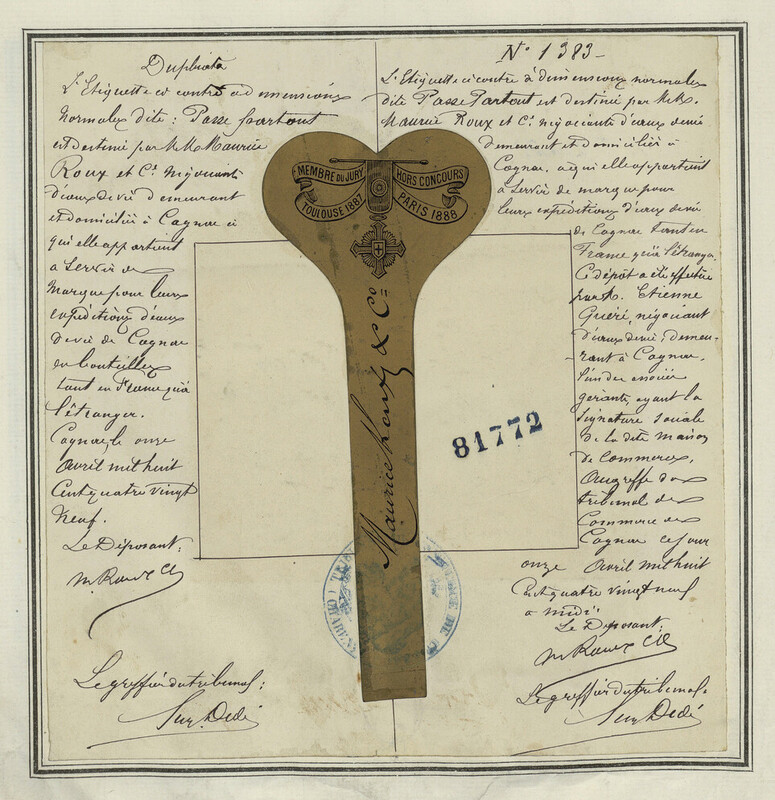 Duplicata
L'Etiquette ci contre a dimensions
normales dite: Passe partout
est destiné par M.M. Maurice
Roux et Cie négociants
d'eaux de vie demeurant
et domiciliés à Cognac et
qui elle appartient
a servir de
marque pour leurs
expéditions d'eaux
de vie de Cognac
en bouteilles
tant en France qu'à
l'étranger.
Cognac, le onze
avril mil huit
cent quatre vingt
neuf.
Le Déposant:
M. Roux & Cie
Le greffier du tribunal:
No 1383-
L'Etiquette ci contre à dimensions normales
dite Passe Partout est destiné par M.M.
Maurice Roux et Cie négociants d'eaux de vie
demeurant et domiciliés à
Cognac, a qui elle appartient
a servir de marque pour
leurs expéditions d'eaux de vie
de Cognac tant en
France qu'à l'étranger.
Ce dépôt a été effectué
par M. Etienne
négociant
d'eaux de vie, demeu-
-rant à Cognac,
l'un des associés
gérants, ayant la
signature sociale
de la dite maison
de commerce,
au greffe du
tribunal de
Commerce de
Cognac ce jour
onze avril mil huit
cent quatre vingt neuf
a midi
Le Déposant:
M. Roux & Cie
Le greffier du tribunal:
MEMBRE DU JURY
HORS CONCOURS
TOULOUSE 1887
PARIS 1888
Maurice & Co
81772